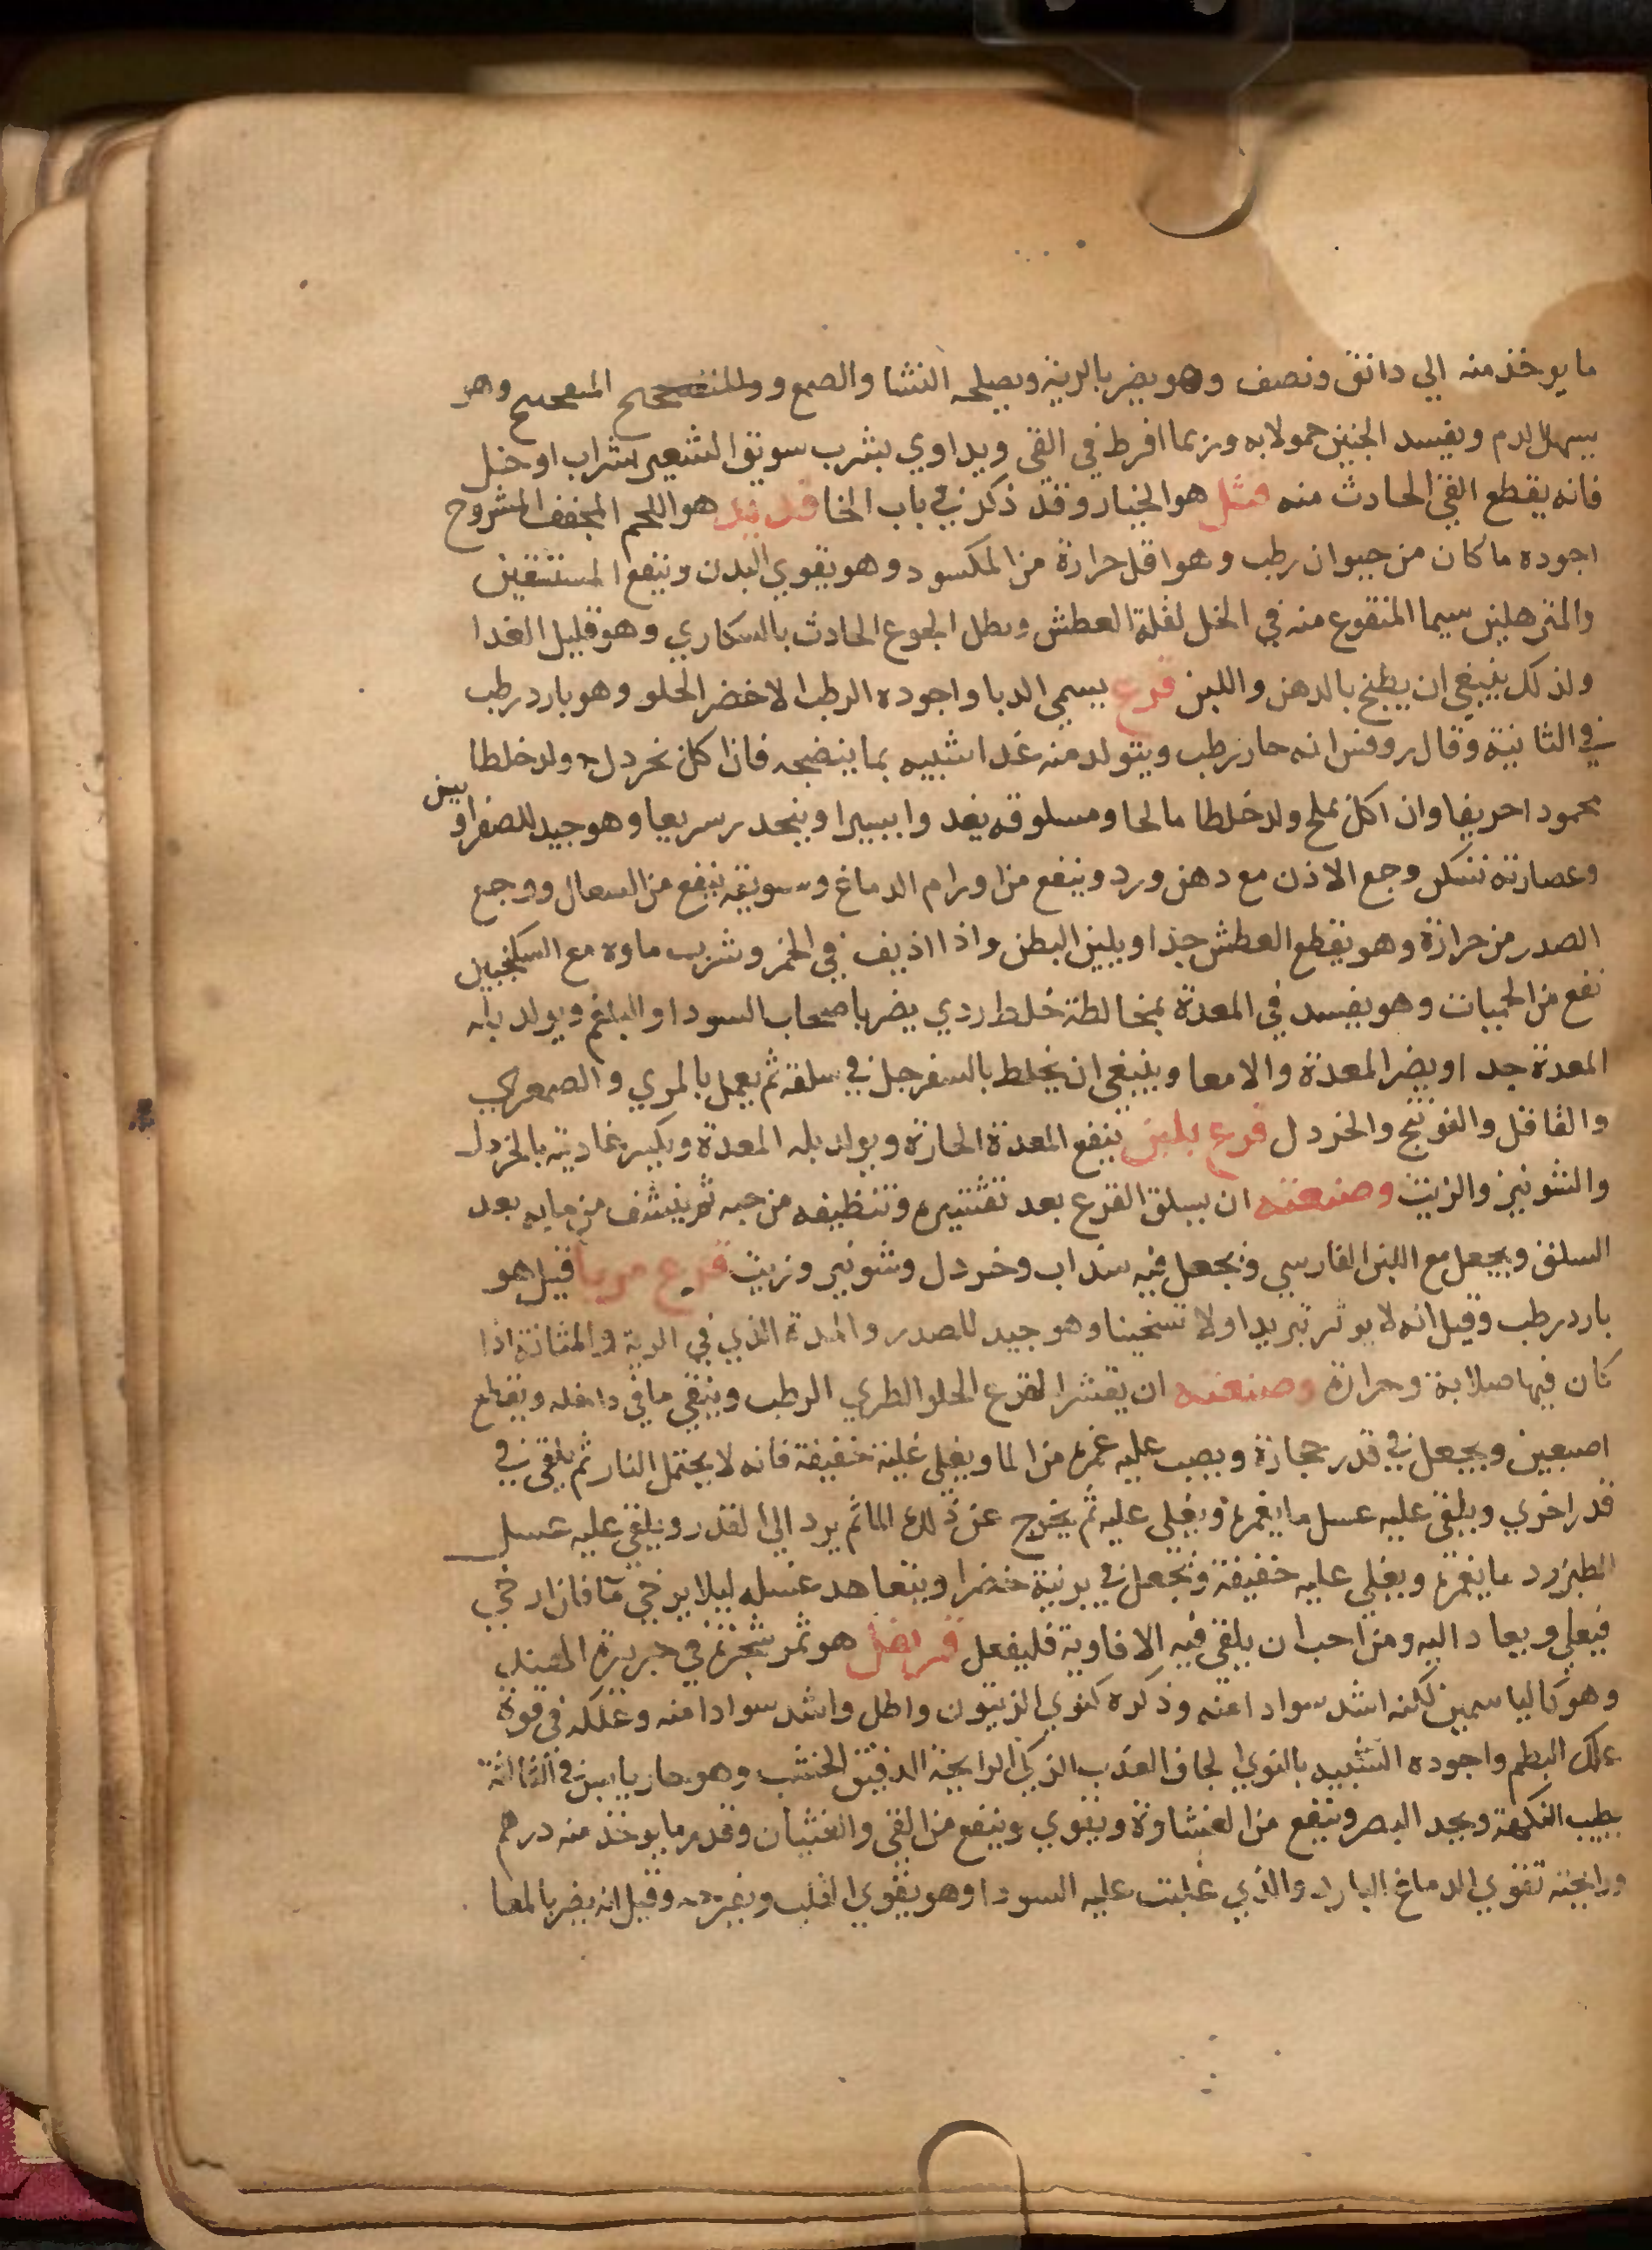 ما يوخذ منه الي دانق ونصف وهو يضر بالرية ويصلحه النشا والصمغ و وهو
يسهل الدم ويفسد الجنين حمولا به وربما افرط في القي ويداوي بشرب سويق الشعير بشراب او خل
فانه يقطع القي الحادث منه قثد هو الخيار وقد ذكر في باب الخا قديد هو اللحم المجفف المشروح
اجوده ما كان من حيوان رطب وهو اقل حرارة من المكسود وهو يقوي البدن وينفع المستسقين
والمترهلين سيما المنقوع منه في الخل لقلة العطش وبطل الجوع الحادث بالسكاري وهو قليل الغدا
ولذلك ينبغي ان يطبخ بالدهن واللبن قرع يسمي الدبا واجوده الرطب الاخضر الحلو وهو بارد رطب
في الثانية وقال روفس انه حار رطب ويتولد منه غدا شبيه بما ينضجه فاذا اكل بخردل ولد خلطا
محمودا حريفا وان اكل بملح ولد خلطا مالحا ومسلوقه يغدوا يسيرا وينحدر سريعا وهو جيد للصفراويين
وعصارته تسكن وجع الاذن مع دهن ورد وينفع من اورام الدماغ وسويقه ينفع من السعال ووجع
الصدر من حرارة وهو يقطع العطش جدا ويلين البطن واذا اذيف في الخمر وشرب ماوه مع السكنجبيل
نفع من الحميات وهو يفسد في المعدة بمخالطة خلط ردي يضر باصحاب السودا والبلغم ويولد بله
المعدة جدا ويضر المعدة والامعا وينبغي ان يخلط بالسفرجل في سلقه ثم يعمل بالمري والصعر
والفافل والفوتنج والخردل قرع بلبن ينفع المعدة الحارة ويولد بله المعدة ويكسر عاديته بالخردل
والشونيز والزيت وصنعته ان يسلق القرع بعد تقشيره وتنظيفه من حبه ثم ينشف من مايه بعد
السلق ويجعل مع اللبن الفارسي ويجعل فيه سذاب وخردل وشونيز وزيت قرع مربا قيل هو
بارد رطب وقيل انه لا يوثر تبريدا ولا تسخينا وهو جيد للصدر والمدة الذي في الرية والمثانة اذا
كان فيها صلابة وحرارة وصنعته ان يقشر القرع الحلو الطري الرطب وينقي ما في داخله ويقطع
اصبعين ويجعل في قدر حجارة ويصب عليه غمره من الما ويغلي غلية خفيفة فانه لا يحتمل النار ثم يلقي في
قدر اخري ويلقي عليه عسل ما يغمره ويغلي عليه ثم يخرج عن ذلك الما ثم يرد الي القدر ويلقي عليه عسل
الطبرزد ما يغمره ويغلي عليه خفيفة ويجعل في برنية خضرا ويتعاهد عسله ليلا يرخي ما فان ارخي
فيغلي ويعاد اليه ومن احب ان يلقي فيه الافاوية فليفعل قرنفل هو ثمر شجرة في جزيرة الهند
وهو كالياسمين لكنه اشد سوادا منه وذكره كنوي الزيتون واطل واشد سوادا منه وعلكه في قوة
علك البطم واجوده الشبيه بالنوي الجاف العذب الزكي الرايحة الدقيق الخشب وهو حار يابس في الثالثة
يطيب النكهة ويحد البصر وينفع من الغشاوة ويقوي وينفع من القي والغثيان وقدر ما يوخذ منه درهم
ورايحته تقوي الدماغ البارد والذي غلبت عليه السودا وهو يقوي القلب ويفرحه وقيل انه يضر بالمعا